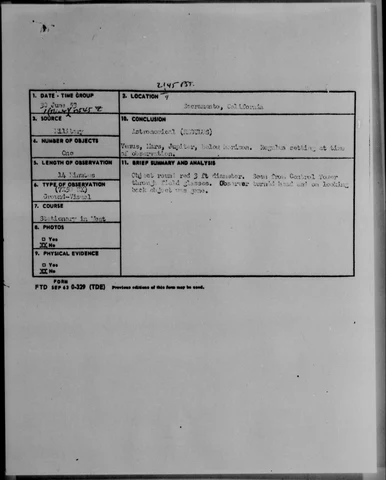 2145 PST
1. DATE - TIME GROUP
30 June 53
2. LOCATION
Sacramento, California
3. SOURCE
Military
10. CONCLUSION
Astronomical (REGULUS)
Venus, Mars, Jupiter, below horizon. Regulus setting at time
of observation.
4. NUMBER OF OBJECTS
One
5. LENGTH OF OBSERVATION
14 Minutes
11. BRIEF SUMMARY AND ANALYSIS
Object round red 3 ft diameter. Seen from Control Tower
through field glasses. Observer turned head and on looking
back object was gone.
6. TYPE OF OBSERVATION
Ground-Visual
7. COURSE
Stationary in West
8. PHOTOS
□ Yes
XX No
9. PHYSICAL EVIDENCE
□ Yes
XX No
FORM
FTD SEP 63 0-329 (TDE) Previous editions of this form may be used.